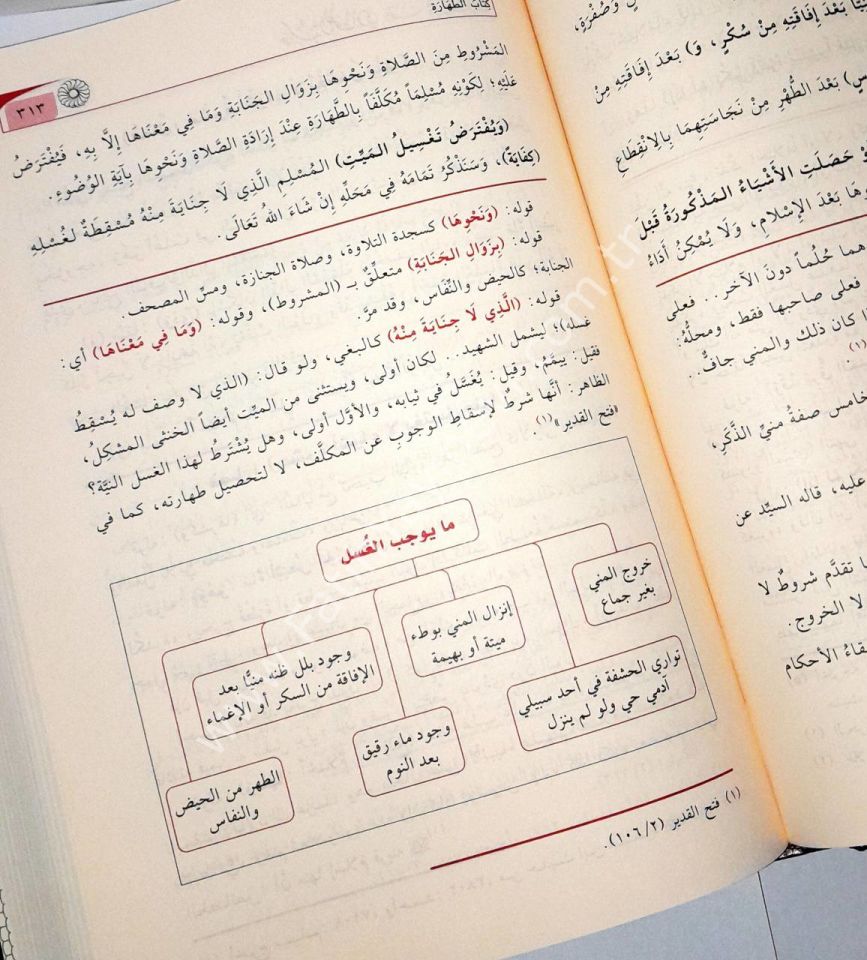 كِتَابُ الطَّهَارَةِ
٣١٣
المَشْرُوطِ مِنَ الصَّلَاةِ وَنَحْوِهَا بِزَوَالِ الجَنَابَةِ وَمَا فِي مَعْنَاهَا إِلَّا بِهِ، فَيُفْتَرَضُ
عَلَيْهِ؛ لِكَوْنِهِ مُسْلِماً مُكَلَّفاً بِالطَّهَارَةِ عِنْدَ إِرَادَةِ الصَّلَاةِ وَنَحْوِهَا بِآيَةِ الوُضُوءِ.
(وَيُفْتَرَضُ تَغْسِيلُ المَيِّتِ) المُسْلِمِ الَّذِي لَا جَنَابَةَ مِنْهُ مُسْقِطَةٌ لِغُسْلِهِ
(كِفَايَةً)، وَسَنَذْكُرُ تَمَامَهُ فِي مَحَلِّهِ إِنْ شَاءَ اللهُ تَعَالَى.
قوله: (وَنَحْوِهَا) كسجدة التلاوة، وصلاة الجنازة، ومسِّ المصحف.
قوله: (بِزَوَالِ الجَنَابَةِ) متعلِّقٌ بـ (المشروط)، وقوله: (وَمَا فِي مَعْنَاهَا) أي:
الجنابة؛ كالحيض والنِّفاس، وقد مرَّ.
قوله: (الَّذِي لَا جِنَايَةَ مِنْهُ) كالبغي، ولو قال: (الذي لا وصف له يُسْقِطُ
غسله)؛ ليشمل الشهيد.. لكان أولى، ويستثنى من الميِّت أيضاً الخنثى المشكِلُ،
فقيل: ييمَّمُ، وقيل: يُغَسَّلُ في ثيابه، والأوَّل أولى، وهل يُشْتَرطُ لهذا الغسل النيَّة؟
الظاهر: أنَّها شرطٌ لإسقاطِ الوجوبِ عن المكلَّف، لا لتحصيل طهارته، كما في
«فتح القدير» (١).
ما يوجب الغُسل
خروج المني
بغير جماع
إنزال المني بوطء
ميتة أو بهيمة
وجود بلل ظنه منيًّا بعد
الإفاقة من السكر أو الإغماء
تواري الحشفة في أحد سبيلي
آدمي حي ولو لم ينزل
وجود ماء رقيق
بعد النوم
الطهر من الحيض
والنفاس
(١) فتح القدير (١٠٦/٢).
بَعْدَ إِفَاقَتِهِ مِنْ سُكْرٍ، وَ) بَعْدَ إِفَاقَتِهِ مِنْ
بَعْدَ الطُّهْرِ مِنْ نَجَاسَتِهِمَا بِالِانْقِطَاعِ
حَصَلَتِ الأَشْيَاءُ المَذْكُورَةُ قَبْلَ
بَعْدَ الإِسْلَامِ، وَلَا يُمْكِنُ أَدَاءُ
حُلُماً دونَ الآخر.. فعلى
فعلى صاحبها فقط، ومحلُّهُ:
كان ذلك والمني جافٌّ..
(١).
صفةُ منيِّ الذَّكَرِ،
عليه، قاله السيِّد عن
تقدَّم شروطٌ لا
لا الخروج.
الأحكام